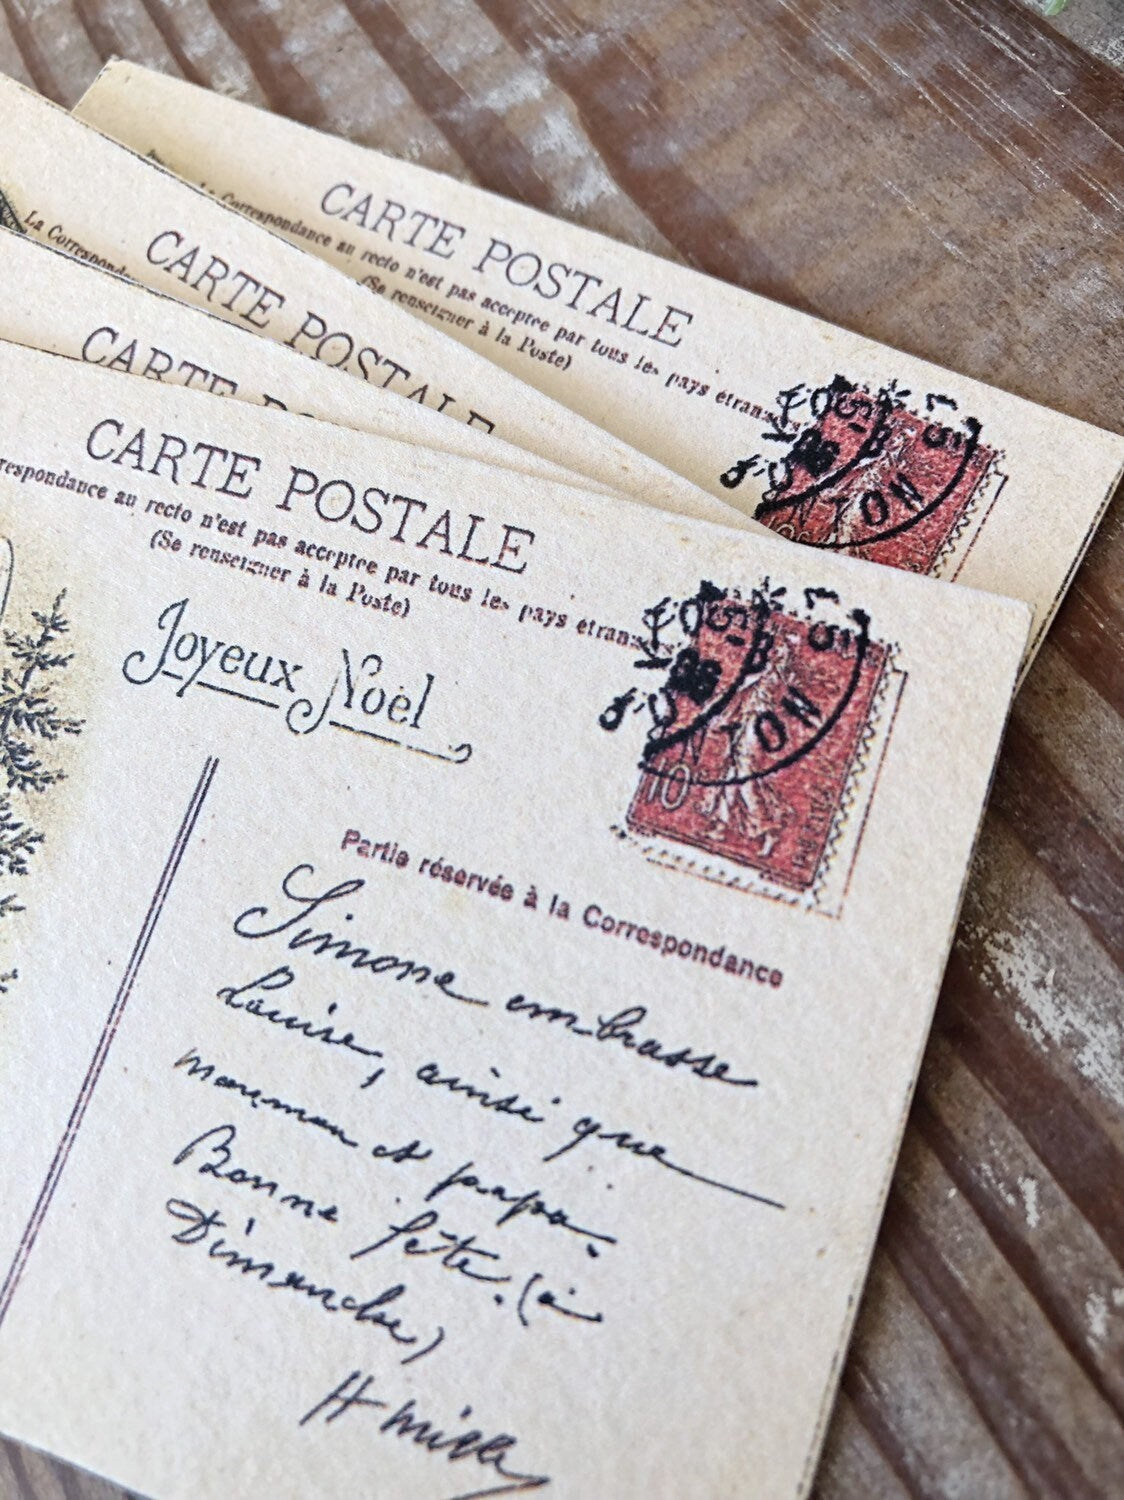 CARTE POSTALE
Correspondance au recto n'est pas acceptee par tous les pays étran
(Se renseigner à la Poste)
TON
CARTE POSTALE
La Corresponda
CARTE POSTALE
CARTE POSTALE
respondance au recto n'est pas acceptee par tous les pays étran
(Se renseigner à la Poste)
Joyeux Noël
TON
10
Partie réservée à la Correspondance
Simone embrasse
Louise, ainsi que
maman et papa.
Bonne fête. (à
Dimanche)